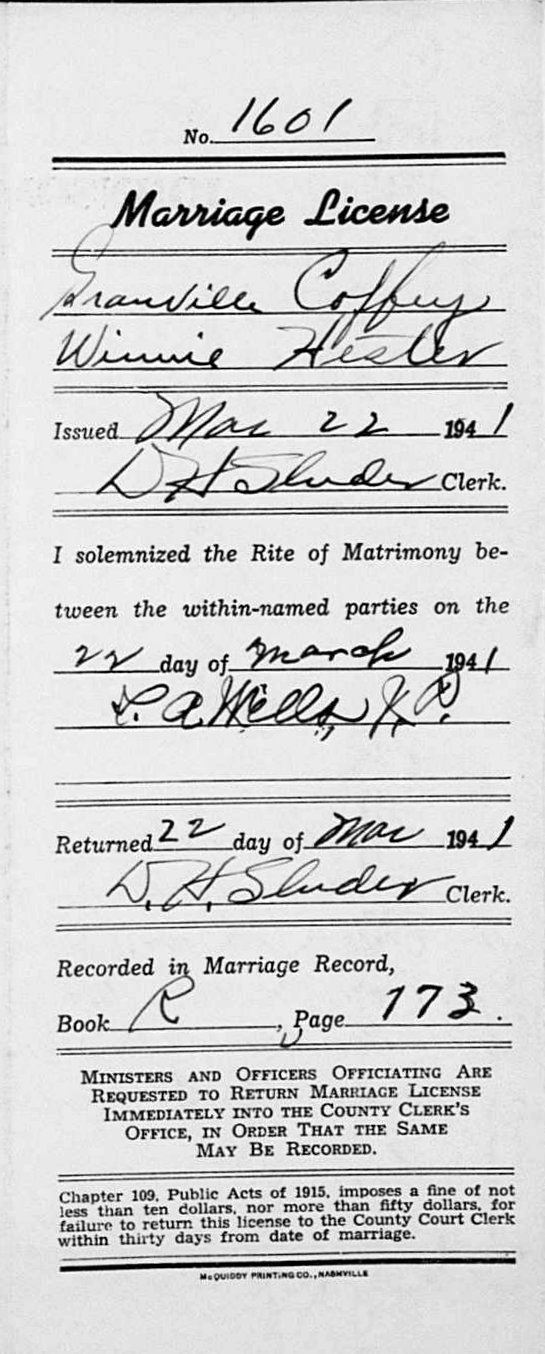 No. 1601
Marriage License
Granville Coffey
Winnie Hester
Issued Mar 22 1941
D H Sluder Clerk.
I solemnized the Rite of Matrimony be-
tween the within-named parties on the
22 day of March 1941
L. A. Wells, J. P.
Returned 22 day of Mar 1941
D. H. Sluder Clerk.
Recorded in Marriage Record,
Book R, Page 173.
MINISTERS AND OFFICERS OFFICIATING ARE
REQUESTED TO RETURN MARRIAGE LICENSE
IMMEDIATELY INTO THE COUNTY CLERK'S
OFFICE, IN ORDER THAT THE SAME
MAY BE RECORDED.
Chapter 109, Public Acts of 1915, imposes a fine of not
less than ten dollars, nor more than fifty dollars, for
failure to return this license to the County Court Clerk
within thirty days from date of marriage.
McQUIDDY PRINTING CO., NASHVILLE